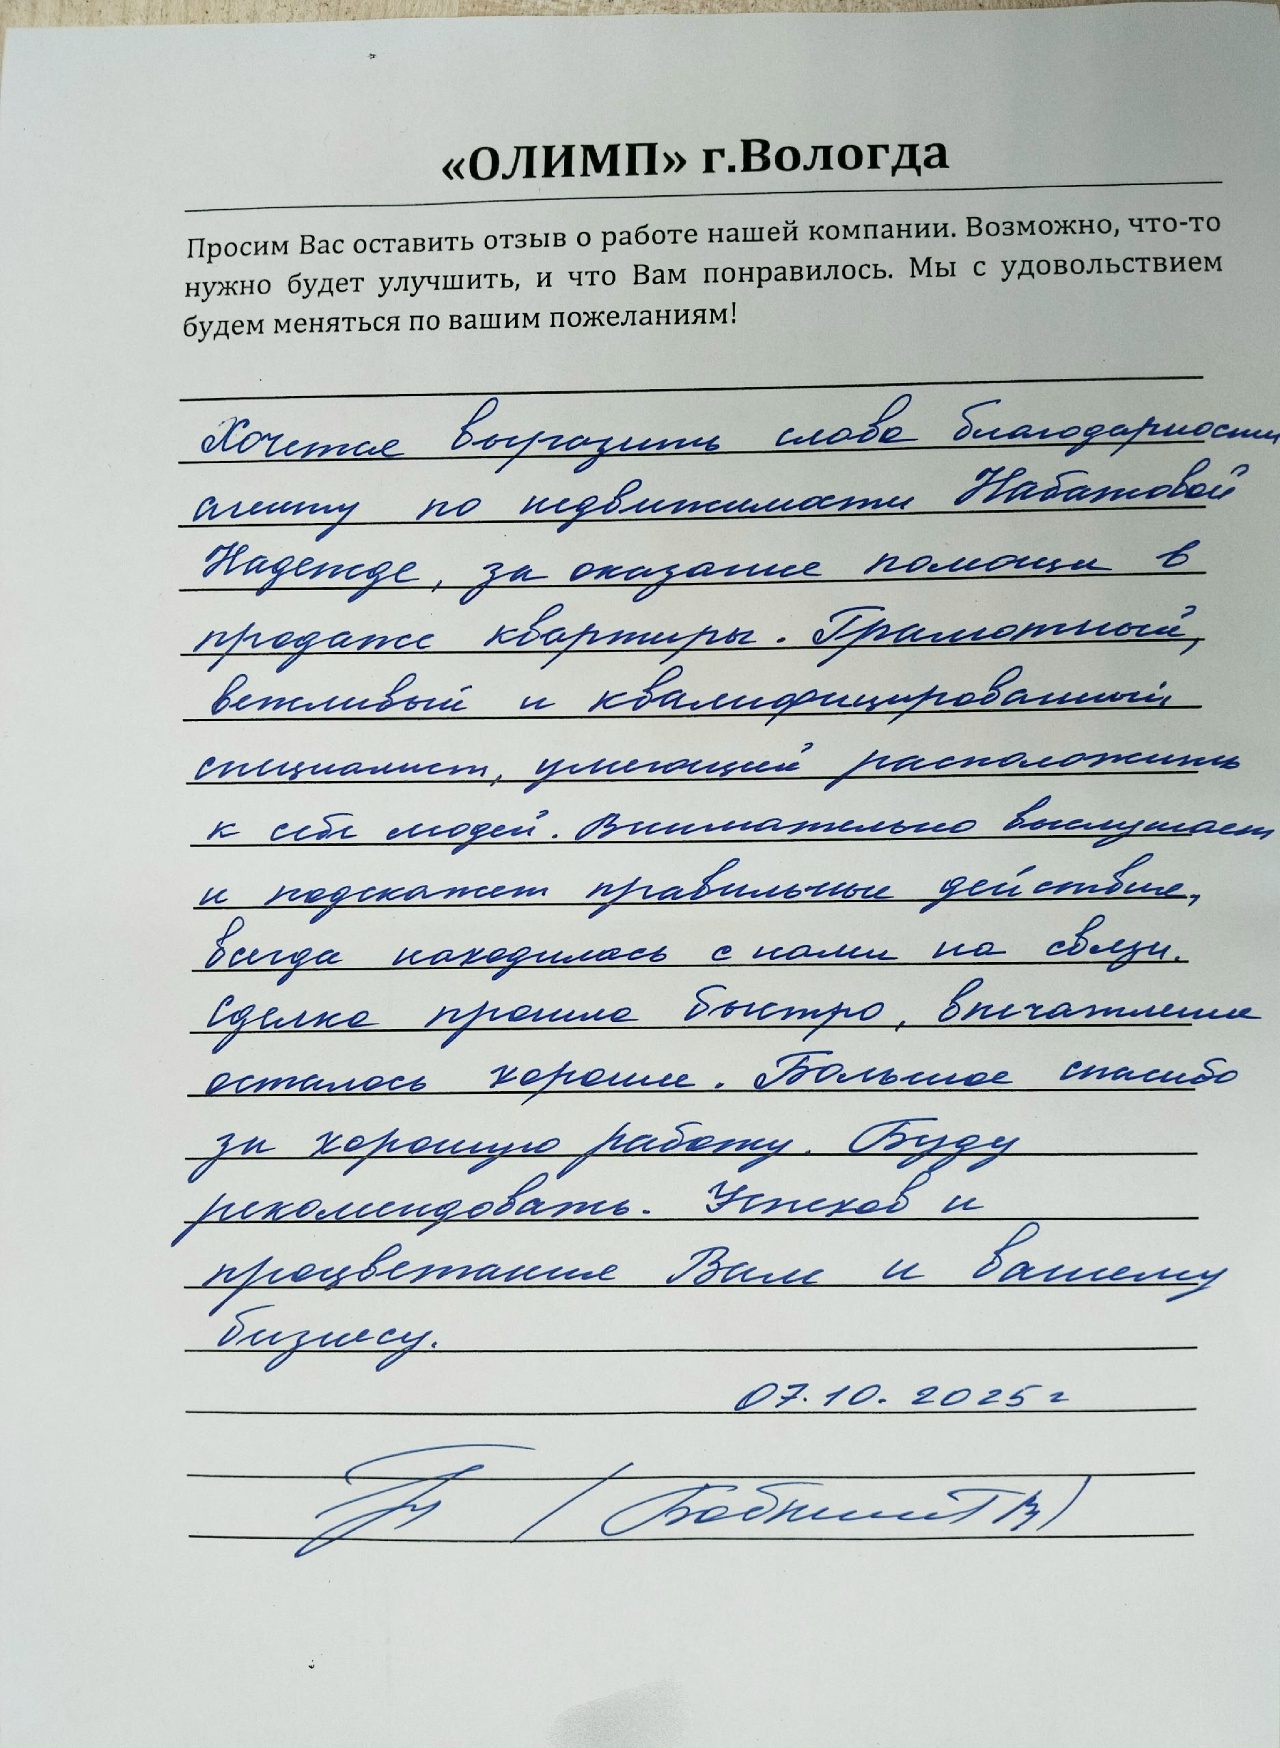 «ОЛИМП» г.Вологда
Просим Вас оставить отзыв о работе нашей компании. Возможно, что-то
нужно будет улучшить, и что Вам понравилось. Мы с удовольствием
будем меняться по вашим пожеланиям!
Хочется выразить слова благодарности
агенту по недвижимости Набатовой
Надежде, за оказание помощи в
продаже квартиры. Грамотный,
вежливый и квалифицированный
специалист, умеющий расположить
к себе людей. Внимательно выслушает
и подскажет правильные действия,
всегда находилась с нами на связи.
Сделка прошла быстро, впечатление
осталось хорошее. Большое спасибо
за хорошую работу. Буду
рекомендовать. Успехов и
процветания Вам и вашему
бизнесу.
07.10.2025г